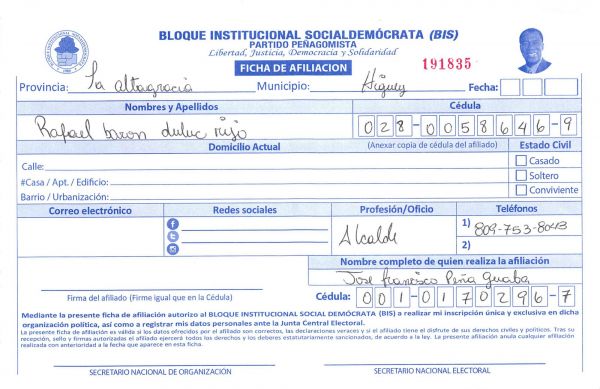 BLOQUE INSTITUCIONAL SOCIALDEMÓCRATA (BIS)
PARTIDO PEÑAGOMISTA
Libertad, Justicia, Democracia y Solidaridad
FICHA DE AFILIACION
191835
Provincia: La altagracia Municipio: Higuey Fecha:
Nombres y Apellidos Cédula
Rafael baron duluc rijo 028-0058646-9
Domicilio Actual (Anexar copia de cédula del afiliado) Estado Civil
Calle: Casado
#Casa / Apt. / Edificio: Soltero
Barrio / Urbanización: Conviviente
Correo electrónico Redes sociales Profesión/Oficio Teléfonos
Alcalde 1) 809-753-8043
2)
Nombre completo de quien realiza la afiliación
Jose francisco Peña Guaba
Firma del afiliado (Firme igual que en la Cédula) Cédula: 001-0170296-7
Mediante la presente ficha de afiliación autorizo al BLOQUE INSTITUCIONAL SOCIAL DEMÓCRATA (BIS) a realizar mi inscripción única y exclusiva en dicha
organización política, así como a registrar mis datos personales ante la Junta Central Electoral.
La presente ficha de afiliación es válida si los datos ofrecidos por el afiliado son correctos, las declaraciones veraces y si el afiliado tiene el disfrute de sus derechos civiles y políticos. Tras su
recepción, sello y firmas autorizadas el afiliado ejercerá todos los derechos y los deberes estatutariamente sancionados, de acuerdo a la ley. La presente afiliación anula cualquier afiliación
realizada con anterioridad a la fecha que aparece en esta ficha.
SECRETARIO NACIONAL DE ORGANIZACIÓN SECRETARIO NACIONAL ELECTORAL